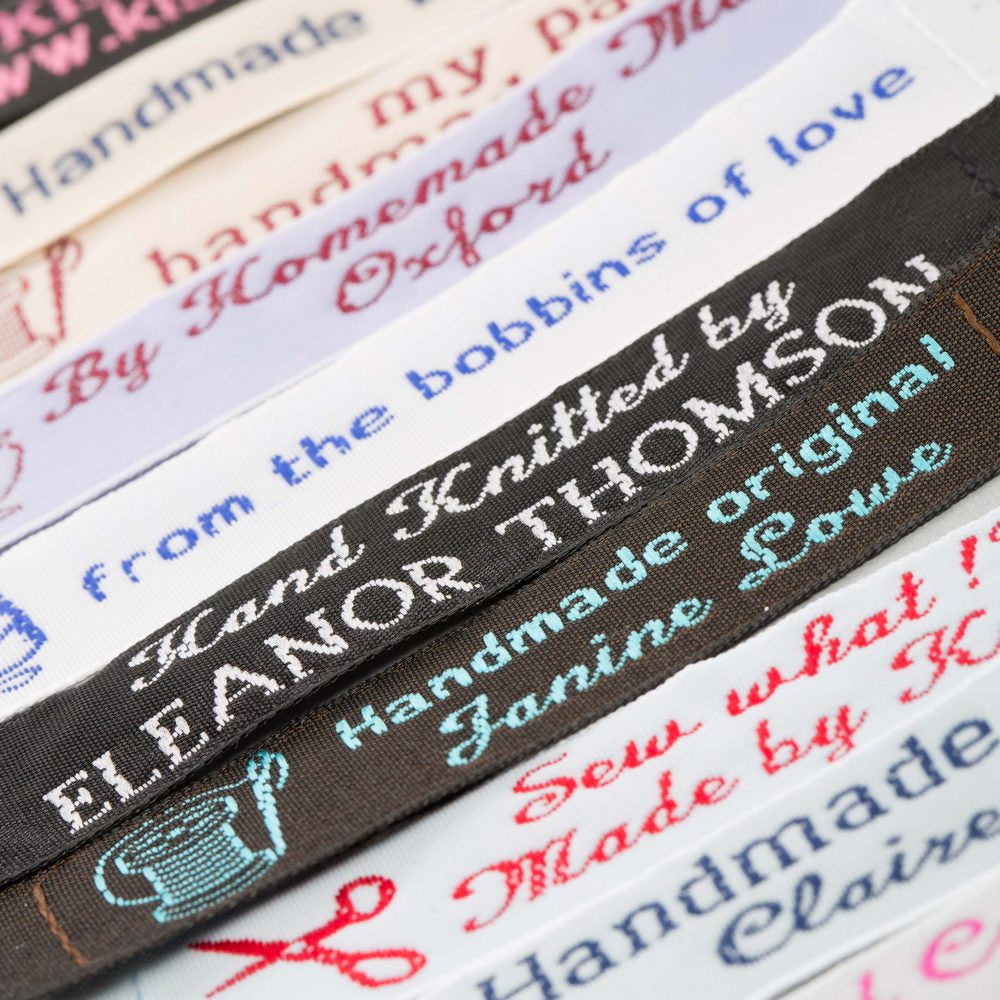 Handmade
my
handma
By Homemade
Oxford
from the bobbins of love
Hand Knitted by
ELEANOR THOMSON
Handmade original
Janine Lowe
Sew what!?
Made by
Handmade
Claire